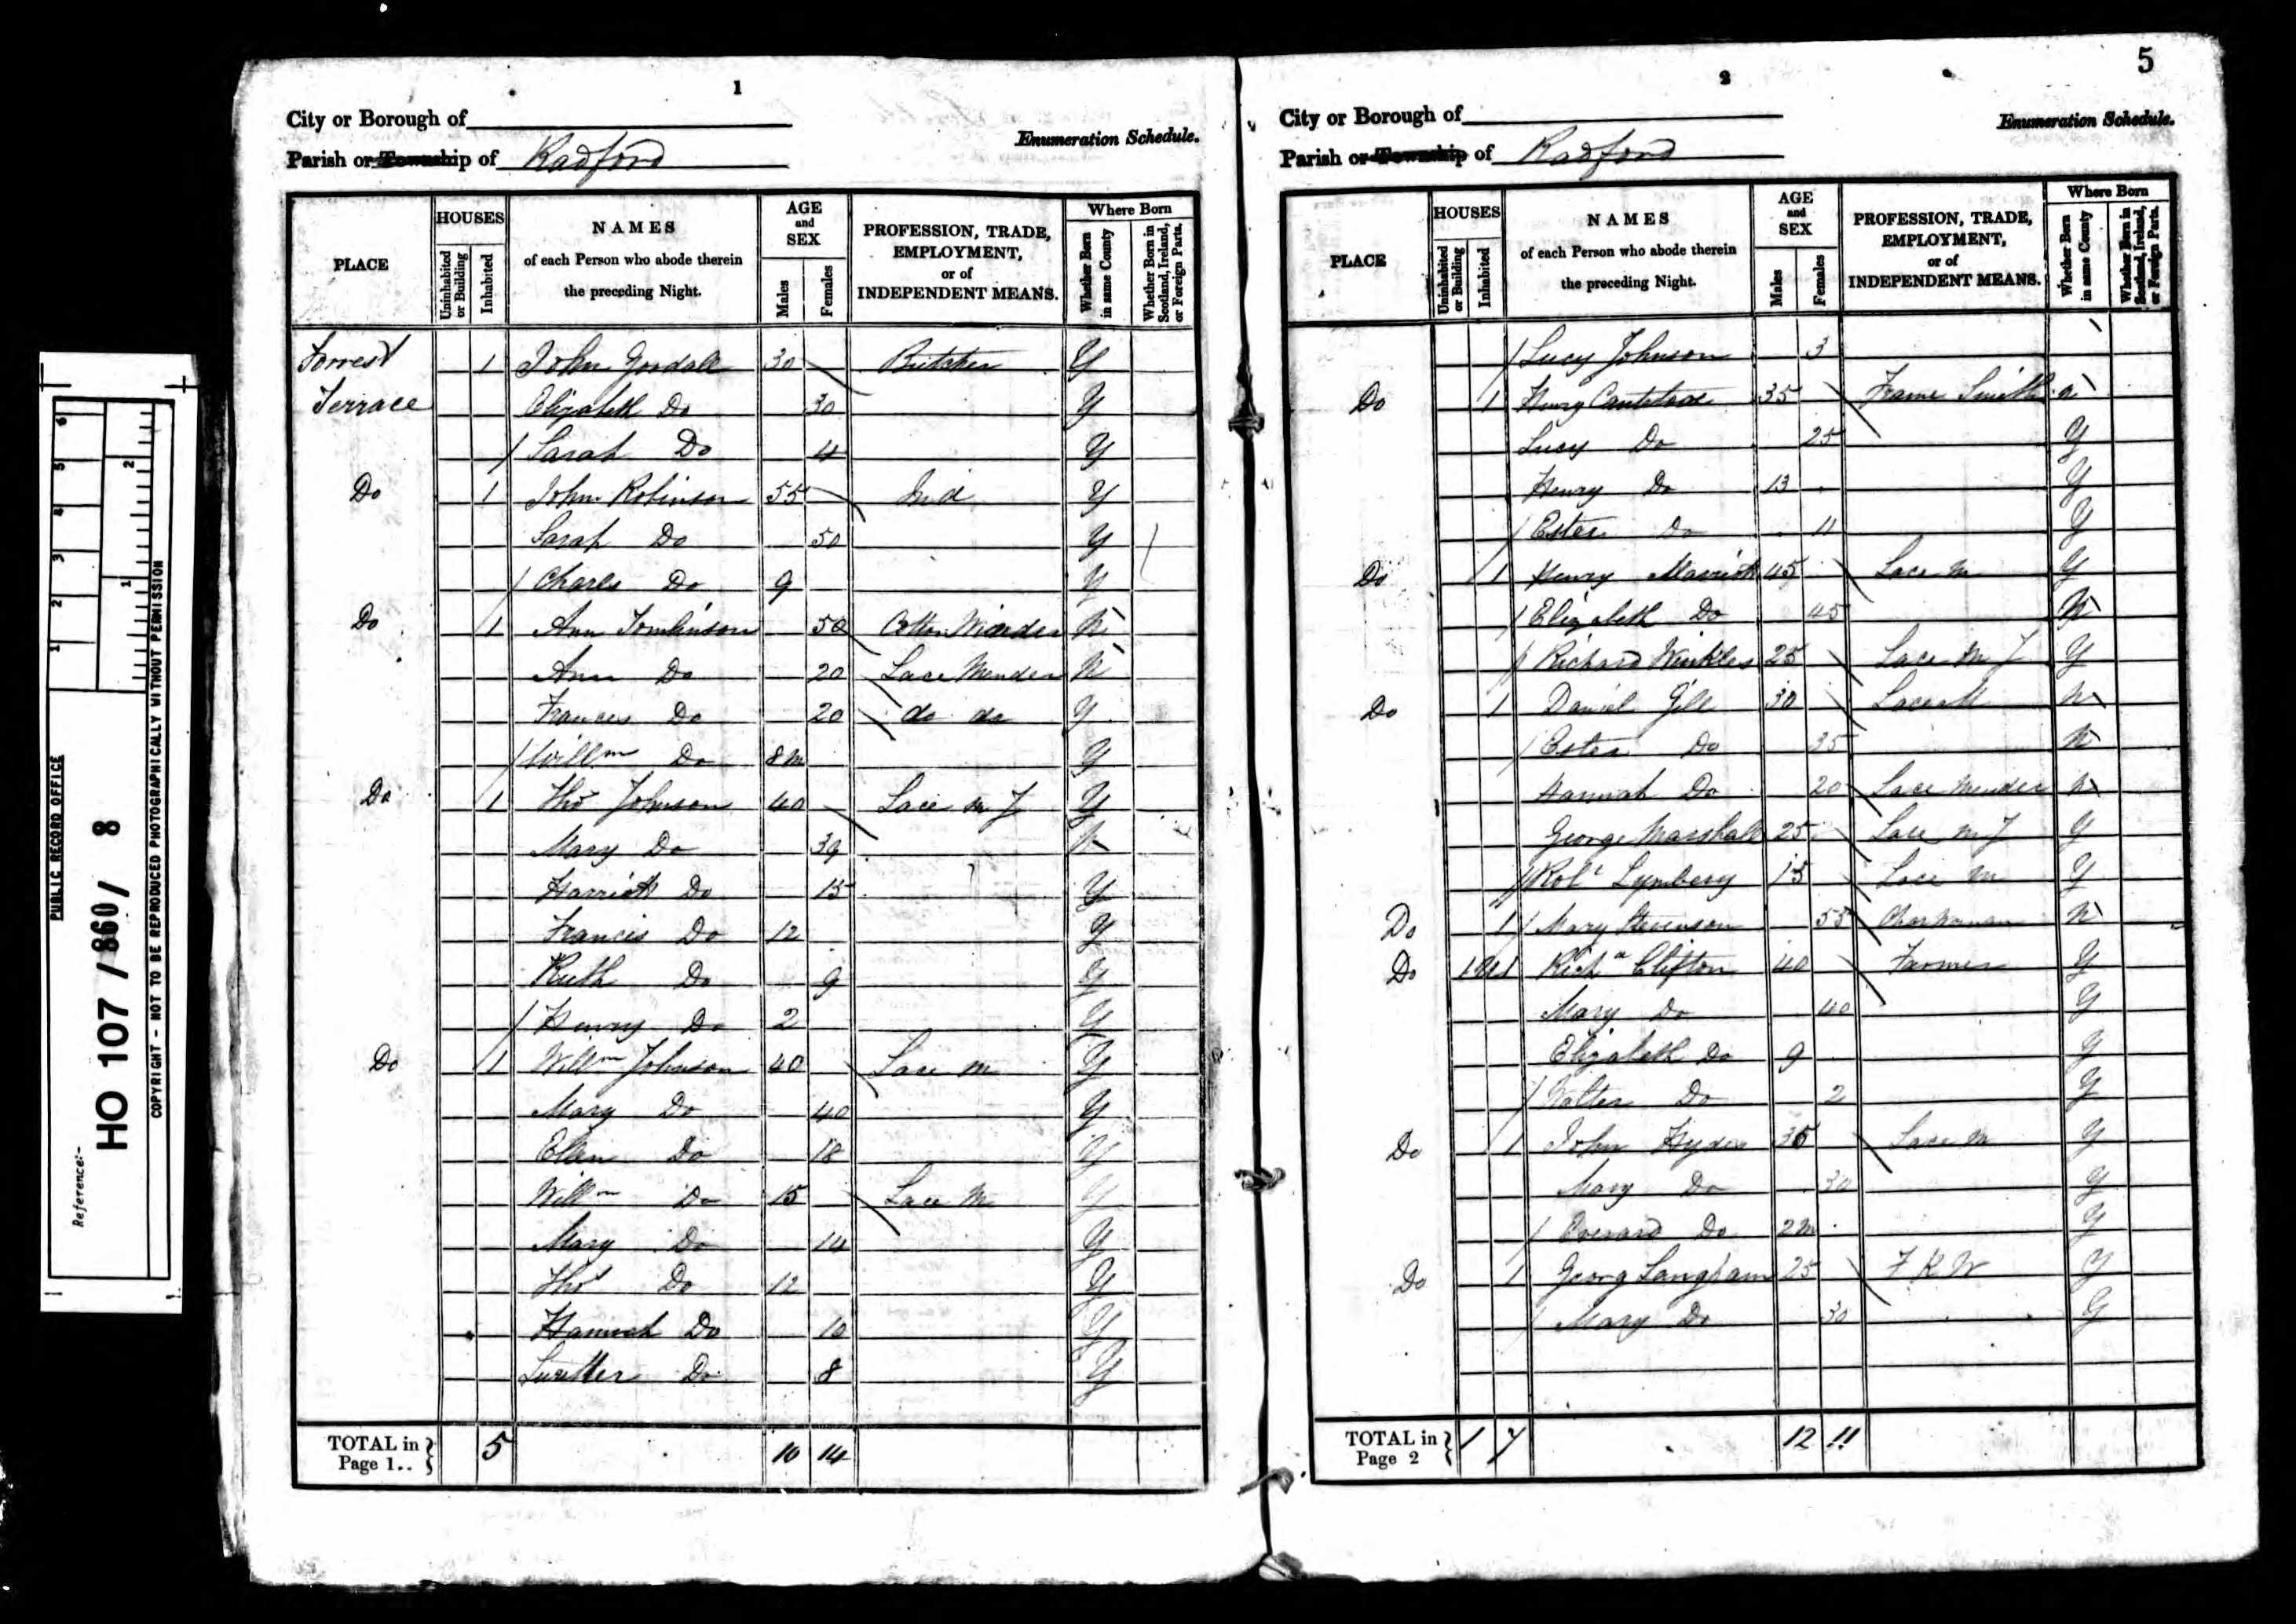 PUBLIC RECORD OFFICE
Reference:-
HO 107 / 860 / 8
COPYRIGHT - NOT TO BE REPRODUCED PHOTOGRAPHICALLY WITHOUT PERMISSION
1
City or Borough of
Enumeration Schedule.
Parish or Township of Radford
PLACE
HOUSES
Uninhabited or Building
Inhabited
NAMES
of each Person who abode therein
the preceding Night.
AGE
and
SEX
Males
Females
PROFESSION, TRADE,
EMPLOYMENT,
or of
INDEPENDENT MEANS.
Where Born
Whether Born in same County
Whether Born in Scotland, Ireland, or Foreign Parts.
Forrest 1 John Goodall 30 Butcher Y
Terrace Elizabeth Do 30 Y
Sarah Do 4 Y
Do 1 John Robinson 55 Ind Y
Sarah Do 50 Y
Charles Do 9 Y
Do 1 Ann Tomlinson 50 Cotton Winder N
Ann Do 20 Lace Mender N
Frances Do 20 do do Y
Willm Do 8m Y
Do 1 Thos Johnson 40 Lace m J Y
Mary Do 39 N
Harriott Do 15 Y
Francis Do 12 Y
Ruth Do 9 Y
Henry Do 2 Y
Do 1 Willm Johnson 40 Lace m Y
Mary Do 40 Y
Ellen Do 18 Y
Willm Do 15 Lace M Y
Mary Do 14 Y
Thos Do 12 Y
Hannah Do 10 Y
Do 8 Y
TOTAL in Page 1.. } 5 10 14
5
2
City or Borough of
Enumeration Schedule.
Parish or Township of Radford
PLACE
HOUSES
Uninhabited or Building
Inhabited
NAMES
of each Person who abode therein
the preceding Night.
AGE
and
SEX
Males
Females
PROFESSION, TRADE,
EMPLOYMENT,
or of
INDEPENDENT MEANS.
Where Born
Whether Born in same County
Whether Born in Scotland, Ireland, or Foreign Parts.
Lucy Johnson 3
Do 1 Henry 35 Frame Smith n
Lucy Do 25 Y
Henry Do 13 Y
Ester Do 11 Y
Do 1 Henry Marriott 45 Lace m Y
Elizabeth Do 45 N
Richard Winkles 25 Lace M J Y
Do 1 Daniel Gill 30 Lace M N
Ester Do 35 N
Hannah Do 20 Lace Mender N
George Marshall 25 Lace m J Y
Robt Lymbery 15 Lace M Y
Do 1 Mary Stevenson 55 Charwoman N
Do 1 U 1 Richd Clifton 40 Farmer Y
Mary Do 40 Y
Elizabeth Do 9 Y
Walter Do 2 Y
Do 1 John Hydes 35 Lace M Y
Mary Do 30 Y
Everard Do 2m Y
Do 1 Georg Langham 25 F K W Y
Mary Do 30 Y
TOTAL in Page 2 } 1 7 12 11